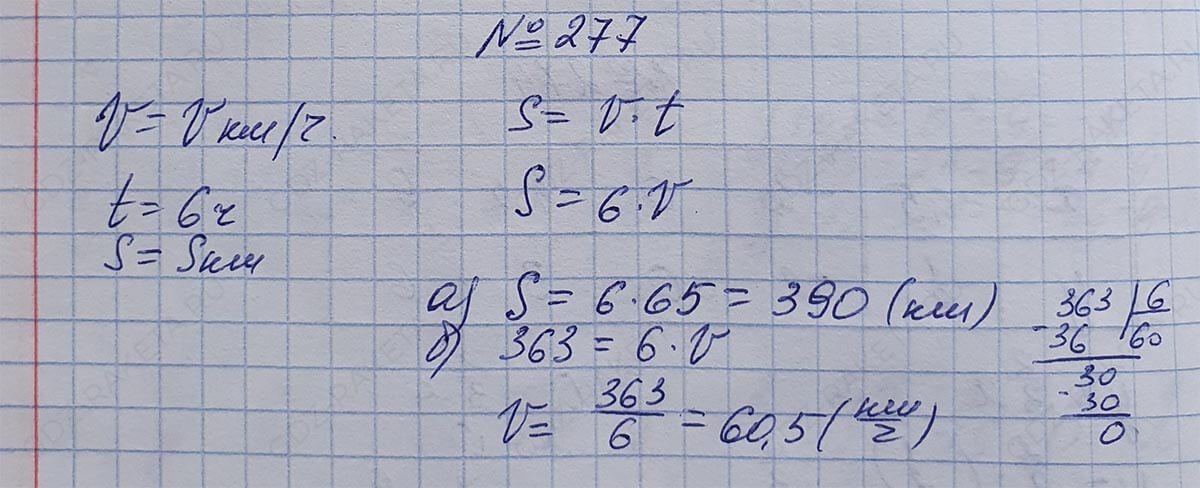 № 277
V = V км/ч.
S = V · t
t = 6 ч
S = 6 · V
S = S км
а) S = 6 · 65 = 390 (км)
б) 363 = 6 · V
V = 363/6 = 60,5 (км/ч)
363 | 6
- 36 | 60
30
- 30
0